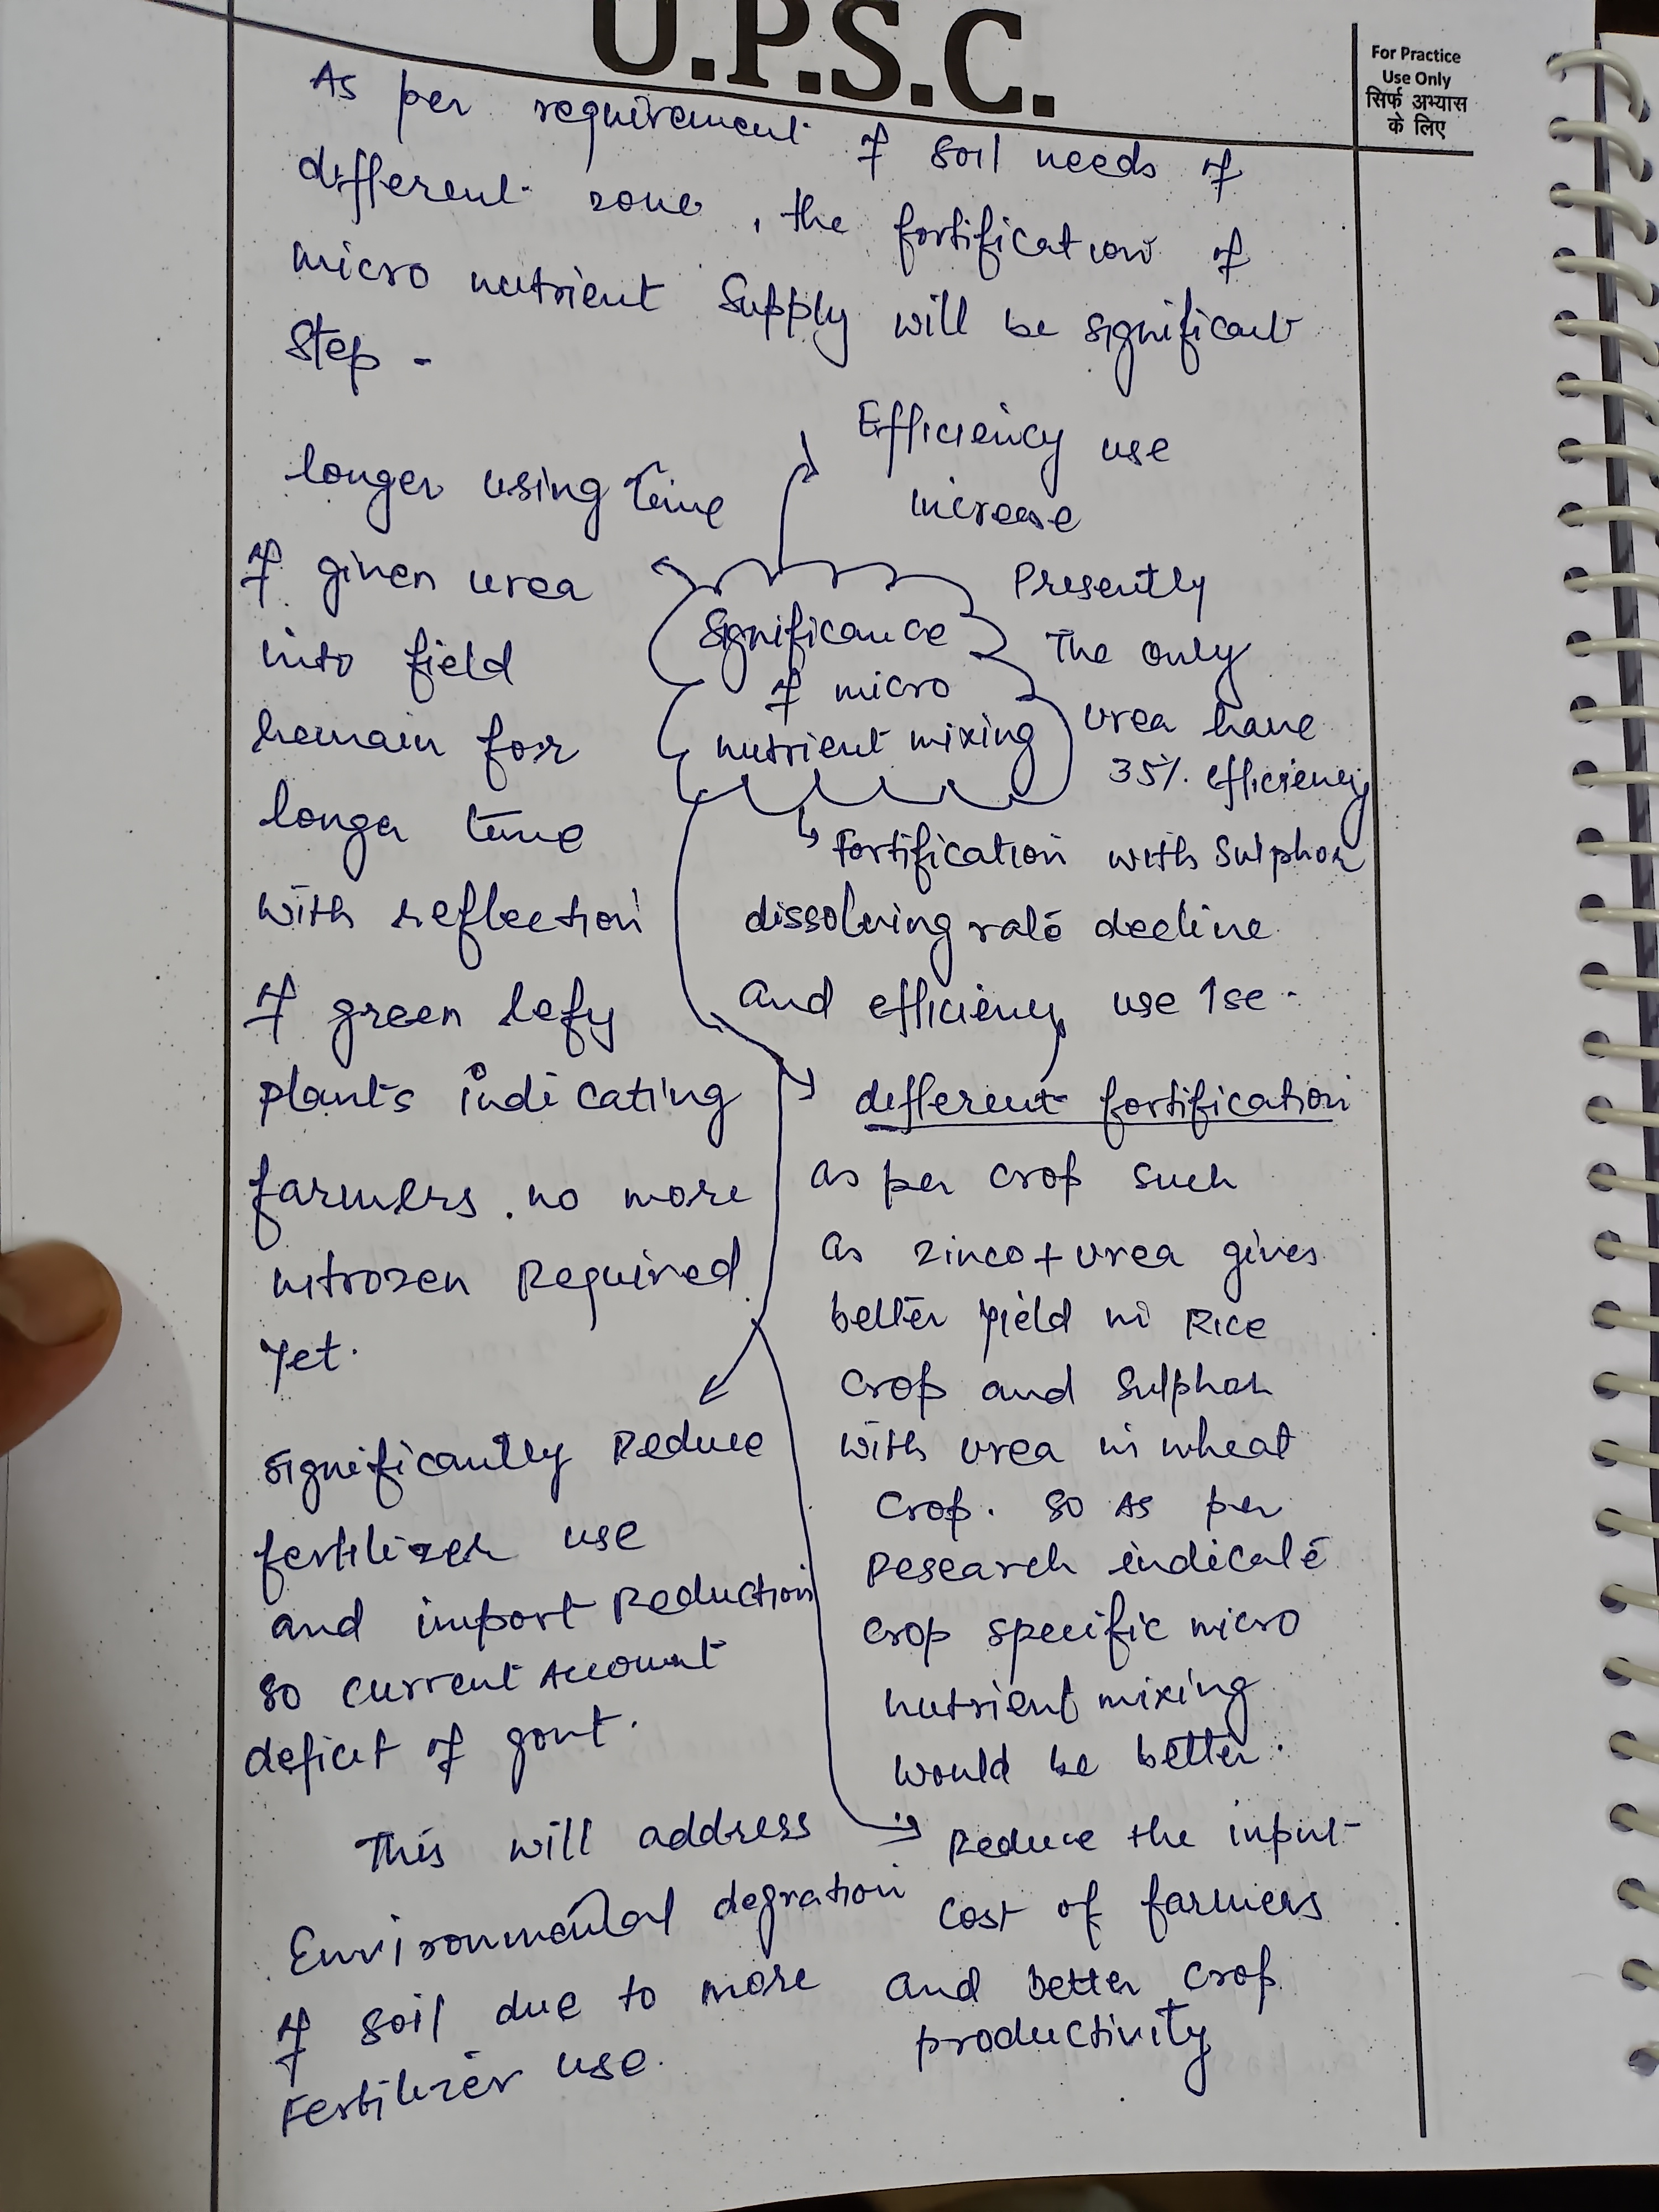 U.P.S.C.
For Practice
Use Only
सिर्फ अभ्यास
के लिए
As per requirement of soil needs of
different zone, the fortification of
micro nutrient Supply will be significant
step -
Efficiency use
increase
Presently
The only
urea have
35% efficiency
longer using time
of given urea
into field
remain for
longer time
with reflection
of green lefy
plants indicating
farmers. no more
nitrozen Required
yet.
Significance
of micro
nutrient mixing
Fortification with Sulphor
dissolving rate decline
and efficiency use ↑se -
different fortification
as per crop such
as zinco + urea gives
better yield in Rice
crop and Sulphor
with urea in wheat
crop. so As per
Research indicate
crop specific micro
nutrient mixing
would be better.
significantly Reduce
fertilizer use
and import Reduction
so current Account
deficit of govt.
Reduce the input
cost of farmers
and better crop
productivity
This will address
Environmental degration
of soil due to more
Fertilizer use.